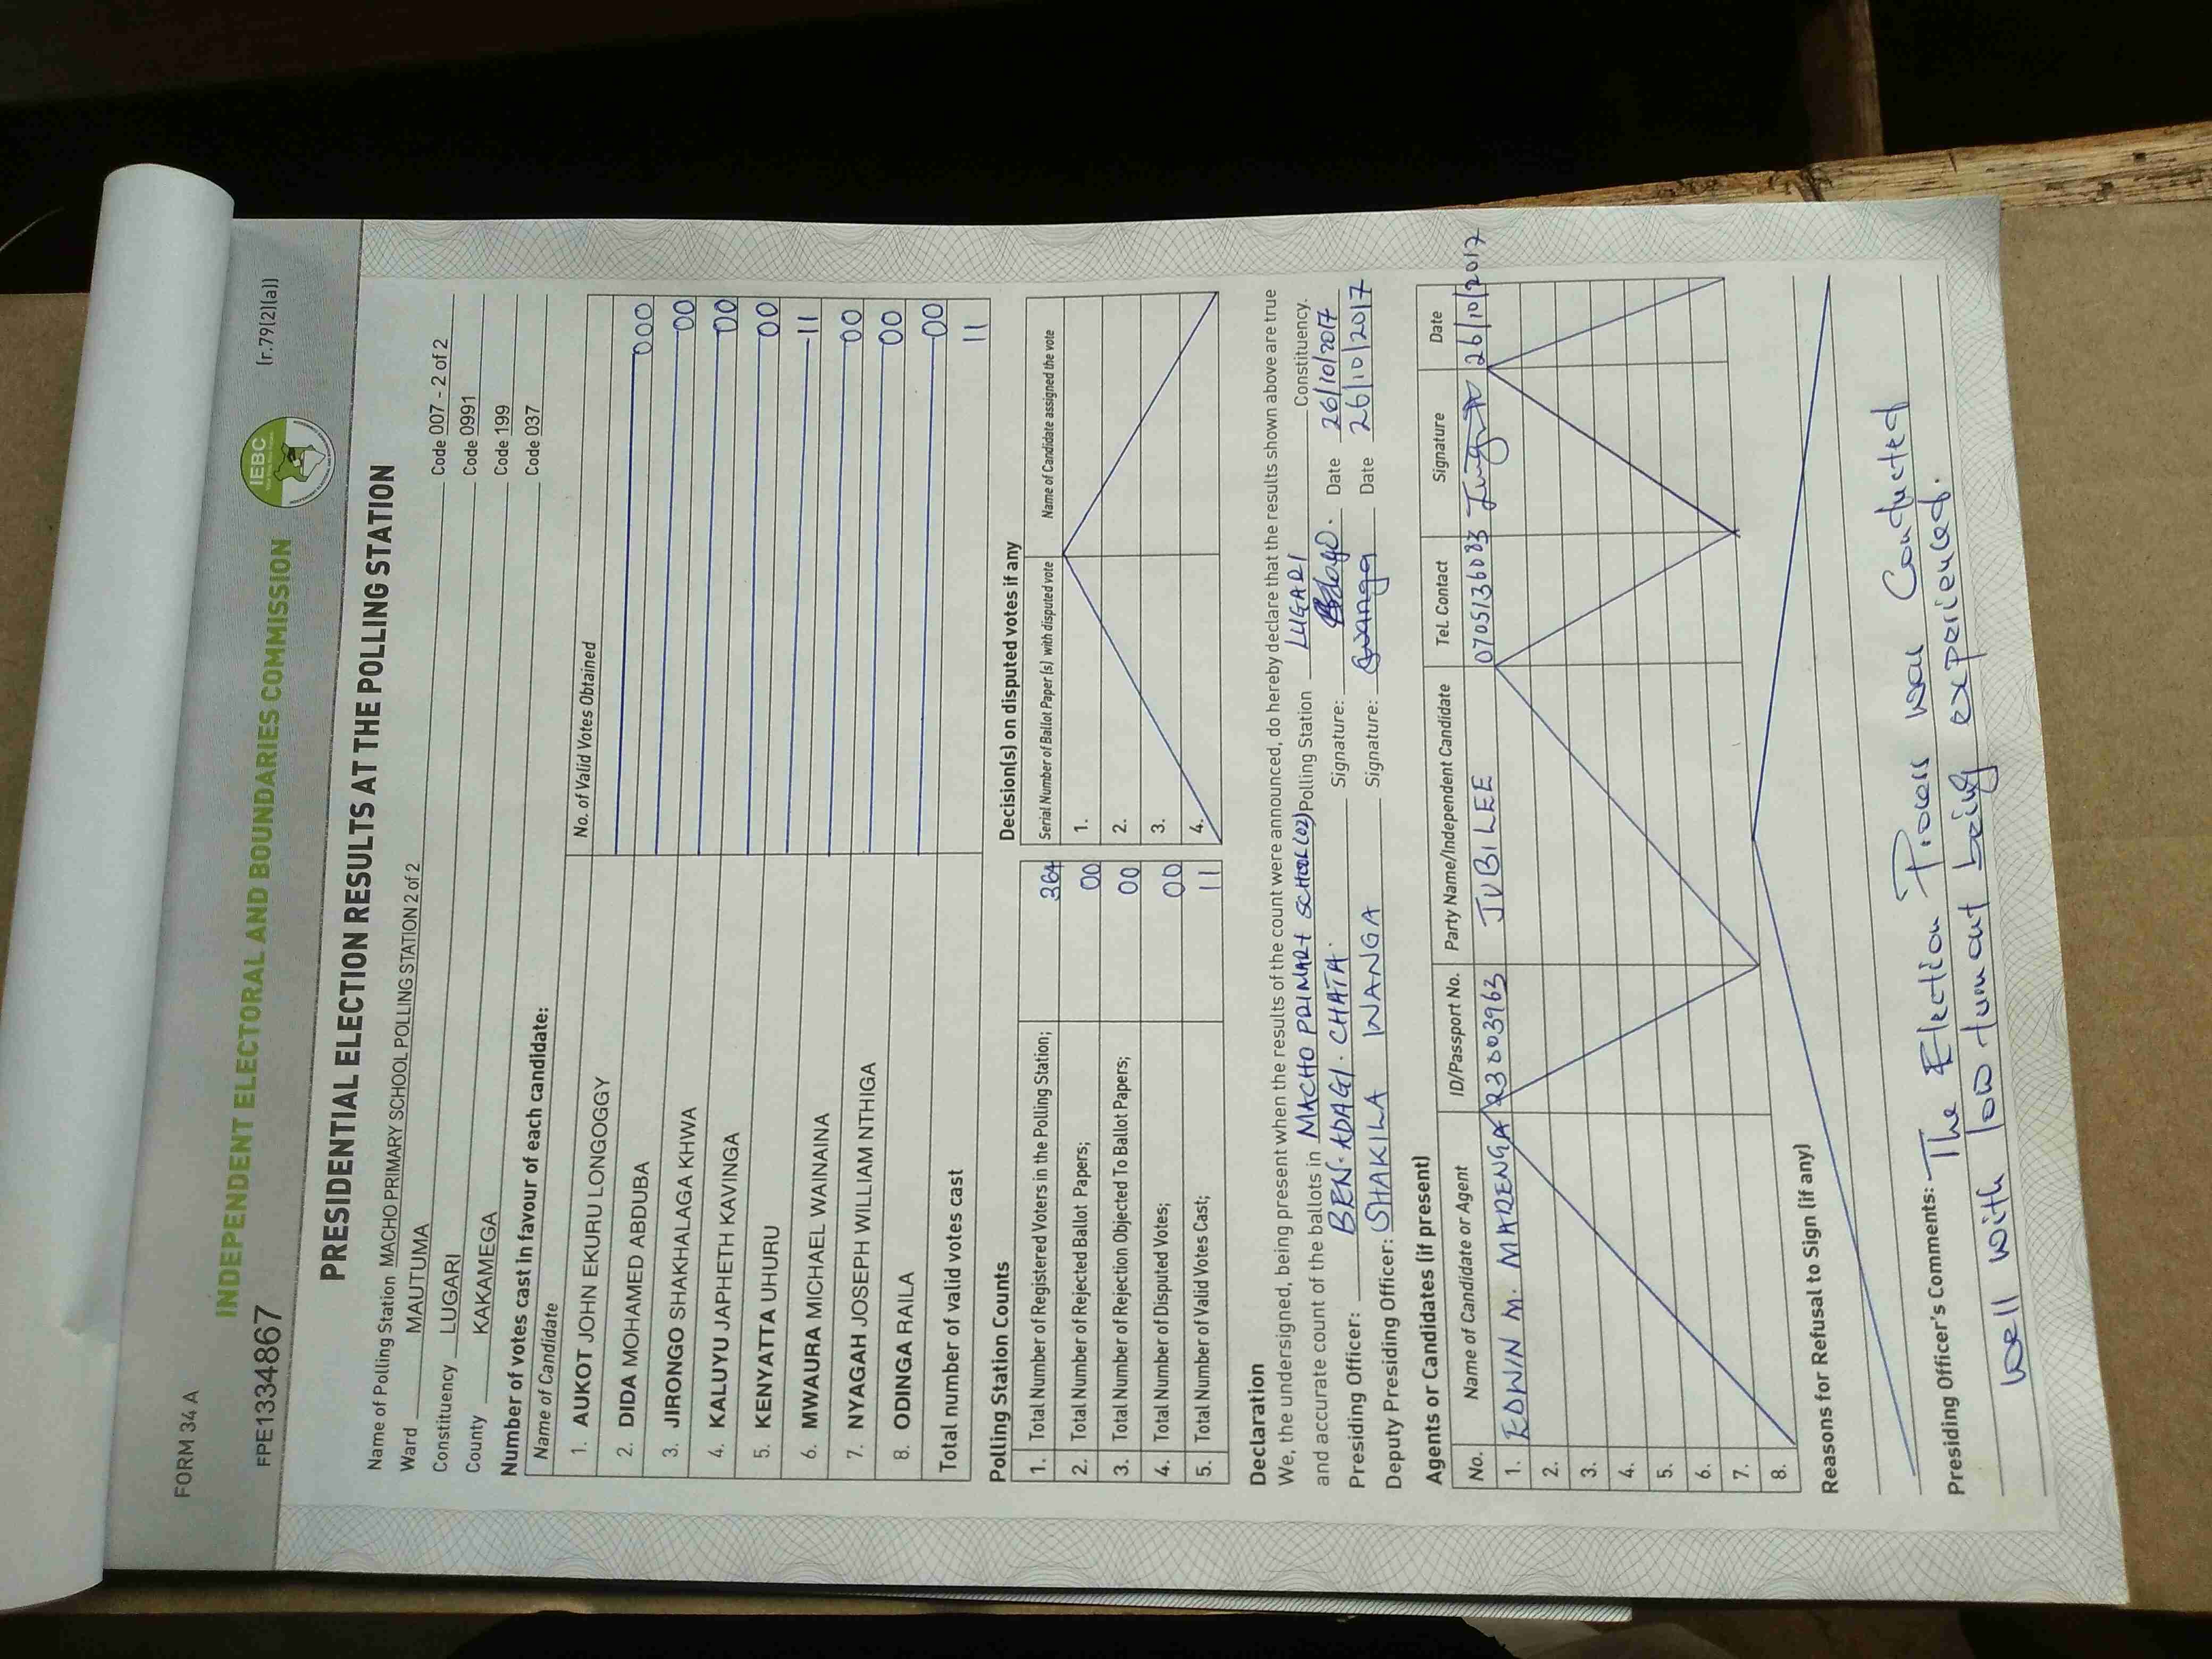 FORM 34 A
(r.79(2)(a))
IEBC
INDEPENDENT ELECTORAL AND BOUNDARIES COMMISSION
FPE1334867
PRESIDENTIAL ELECTION RESULTS AT THE POLLING STATION
Name of Polling Station MACHO PRIMARY SCHOOL POLLING STATION 2 of 2 Code 007 - 2 of 2
Ward MAUTUMA Code 0991
Constituency LUGARI Code 199
County KAKAMEGA Code 037
Number of votes cast in favour of each candidate:
Name of Candidate No. of Valid Votes Obtained
1. AUKOT JOHN EKURU LONGOGGY 000
2. DIDA MOHAMED ABDUBA 00
3. JIRONGO SHAKHALAGA KHWA 00
4. KALUYU JAPHETH KAVINGA 00
5. KENYATTA UHURU 11
6. MWAURA MICHAEL WAINAINA 00
7. NYAGAH JOSEPH WILLIAM NTHIGA 00
8. ODINGA RAILA 00
Total number of valid votes cast 11
Polling Station Counts
1. Total Number of Registered Voters in the Polling Station; 364
2. Total Number of Rejected Ballot Papers; 00
3. Total Number of Rejection Objected To Ballot Papers; 00
4. Total Number of Disputed Votes; 00
5. Total Number of Valid Votes Cast; 11
Decision(s) on disputed votes if any
Serial Number of Ballot Paper (s) with disputed vote Name of Candidate assigned the vote
1.
2.
3.
4.
Declaration
We, the undersigned, being present when the results of the count were announced, do hereby declare that the results shown above are true
and accurate count of the ballots in MACHO PRIMARY SCHOOL (02) Polling Station LUGARI Constituency.
Presiding Officer: BEN. ADAGI. CHATA. Signature: Date 26/10/2017
Deputy Presiding Officer: SHAKILA WANGA Signature: Swanga Date 26/10/2017
Agents or Candidates (if present)
No. Name of Candidate or Agent ID/Passport No. Party Name/Independent Candidate Tel. Contact Signature Date
1. EDWIN M. MARENGA 23003963 JUBILEE 0705136083 26/10/2017
2.
3.
4.
5.
6.
7.
8.
Reasons for Refusal to Sign (if any)
Presiding Officer's Comments: The Election Process was Conducted
well with low turnout being experienced.